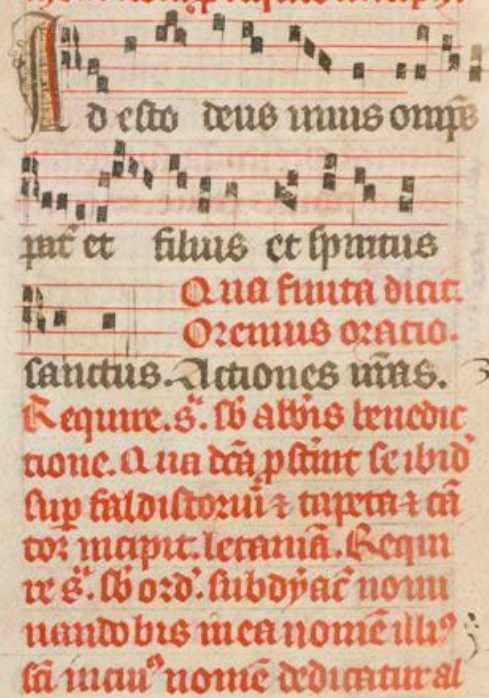 Adesto deus unus omp̄s
pat̄ et filius et spiritus
Qua finita dicit.
Oremus oratio.
sanctus. Actiones n̄ras.
Require. s. sb abb̄is benedic
tione. Qua dc̄a pstr̄nt se ibid'
sup faldistoriū ⁊ tapeta ⁊ cā
tor incipit. letaniā. Requi
re s. sb ord'. subdyac̄ nomi
nando bis in ea nomē illi⁹
sc̄i in cui⁹ nomē dedicatur al